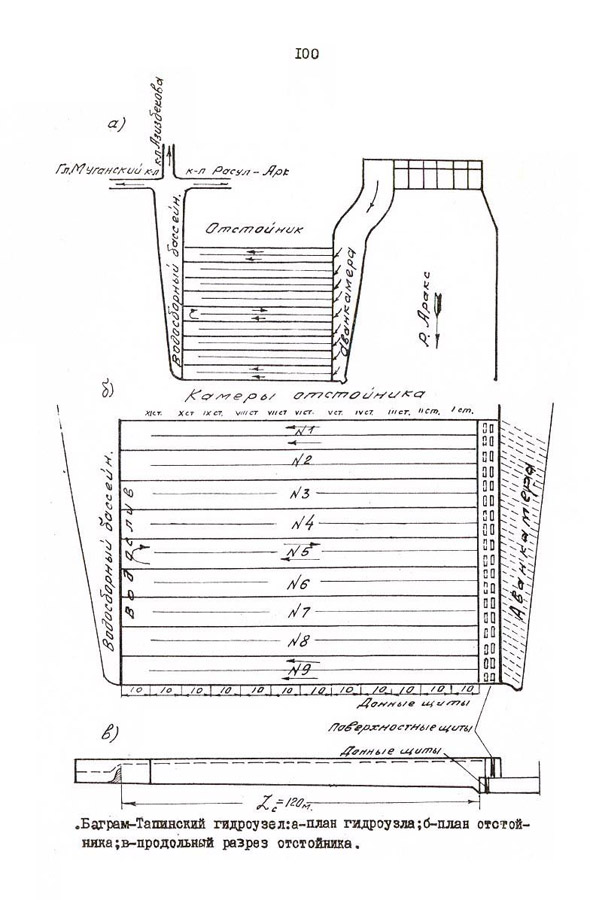 100
а)
кл Азизбекова
Гл.Муганский к-л
к-л Расул-Арк
Отстойник
Водосборный бассейн.
Аванкамера
р. Аракс
б)
Камеры отстойника
XI ст. X ст IX ст. VIII ст VII ст VI ст. V ст. IV ст. III ст. II ст. I ст.
N1
N2
N3
N4
N5
N6
N7
N8
N9
Водосборный бассейн.
Водослив
Аванкамера
10 10 10 10 10 10 10 10 10 10 10 10
Донные щиты
Поверхностные щиты
Донные щиты
в)
Lс=120м.
.Баграм-Тапинский гидроузел:а-план гидроузла;б-план отстой-
ника;в-продольный разрез отстойника.